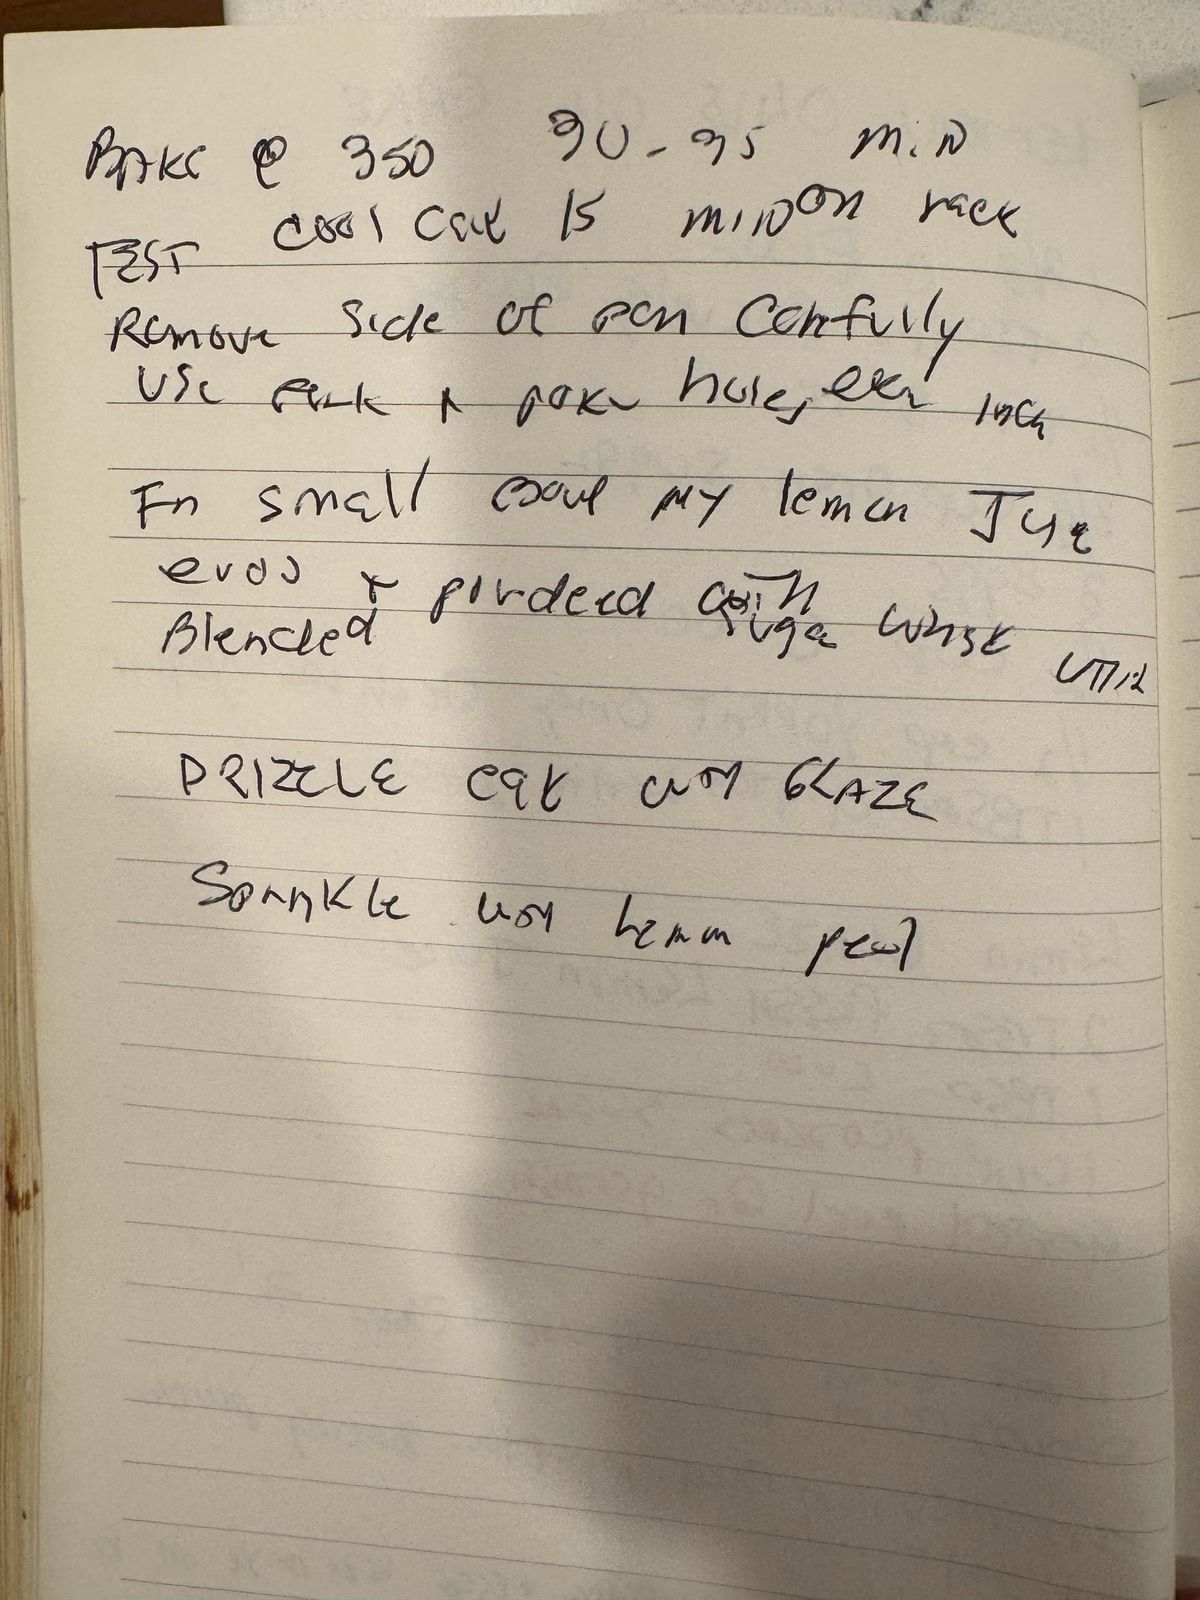 BAKE @ 350 30-35 min
TEST cool cake 15 min on rack
Remove side of pan carefully
use fork & poke holes every inch
In small bowl mix lemon Juice
evoo & powdered sugar with whisk until
Blended
DRIZZLE cake with GLAZE
Sprinkle with lemon peel